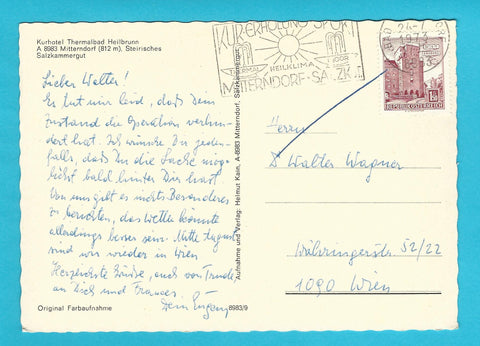 Kurhotel Thermalbad Heilbrunn
A 8983 Mitterndorf (812 m), Steirisches
Salzkammergut
Lieber Walter!
Es tut mir leid, daß Dein
Zustand die Operation verhin-
dert hat. Ich wünsche Dir jeden-
falls, daß Du die Sache mög-
lichst bald hinter Dir hast
Von uns gibt es nichts Besonderes
zu berichten, das Wetter könnte
allerdings besser sein. Mitte August
sind wir wieder in Wien
Herzlichste Grüße, auch von Trude
an Dich und Frances.
Dein Eugen
Original Farbaufnahme
8983/9
Aufnahme und Verlag: Helmut Kain, A-8983 Mitterndorf, Salzkammergut
KUR ERHOLUNG SPORT
HEILKLIMA
MITTERNDORF-SALZK
1973
REPUBLIK ÖSTERREICH
Herrn
Dr Walter Wagner
Währingerstr 52/22
1090 Wien